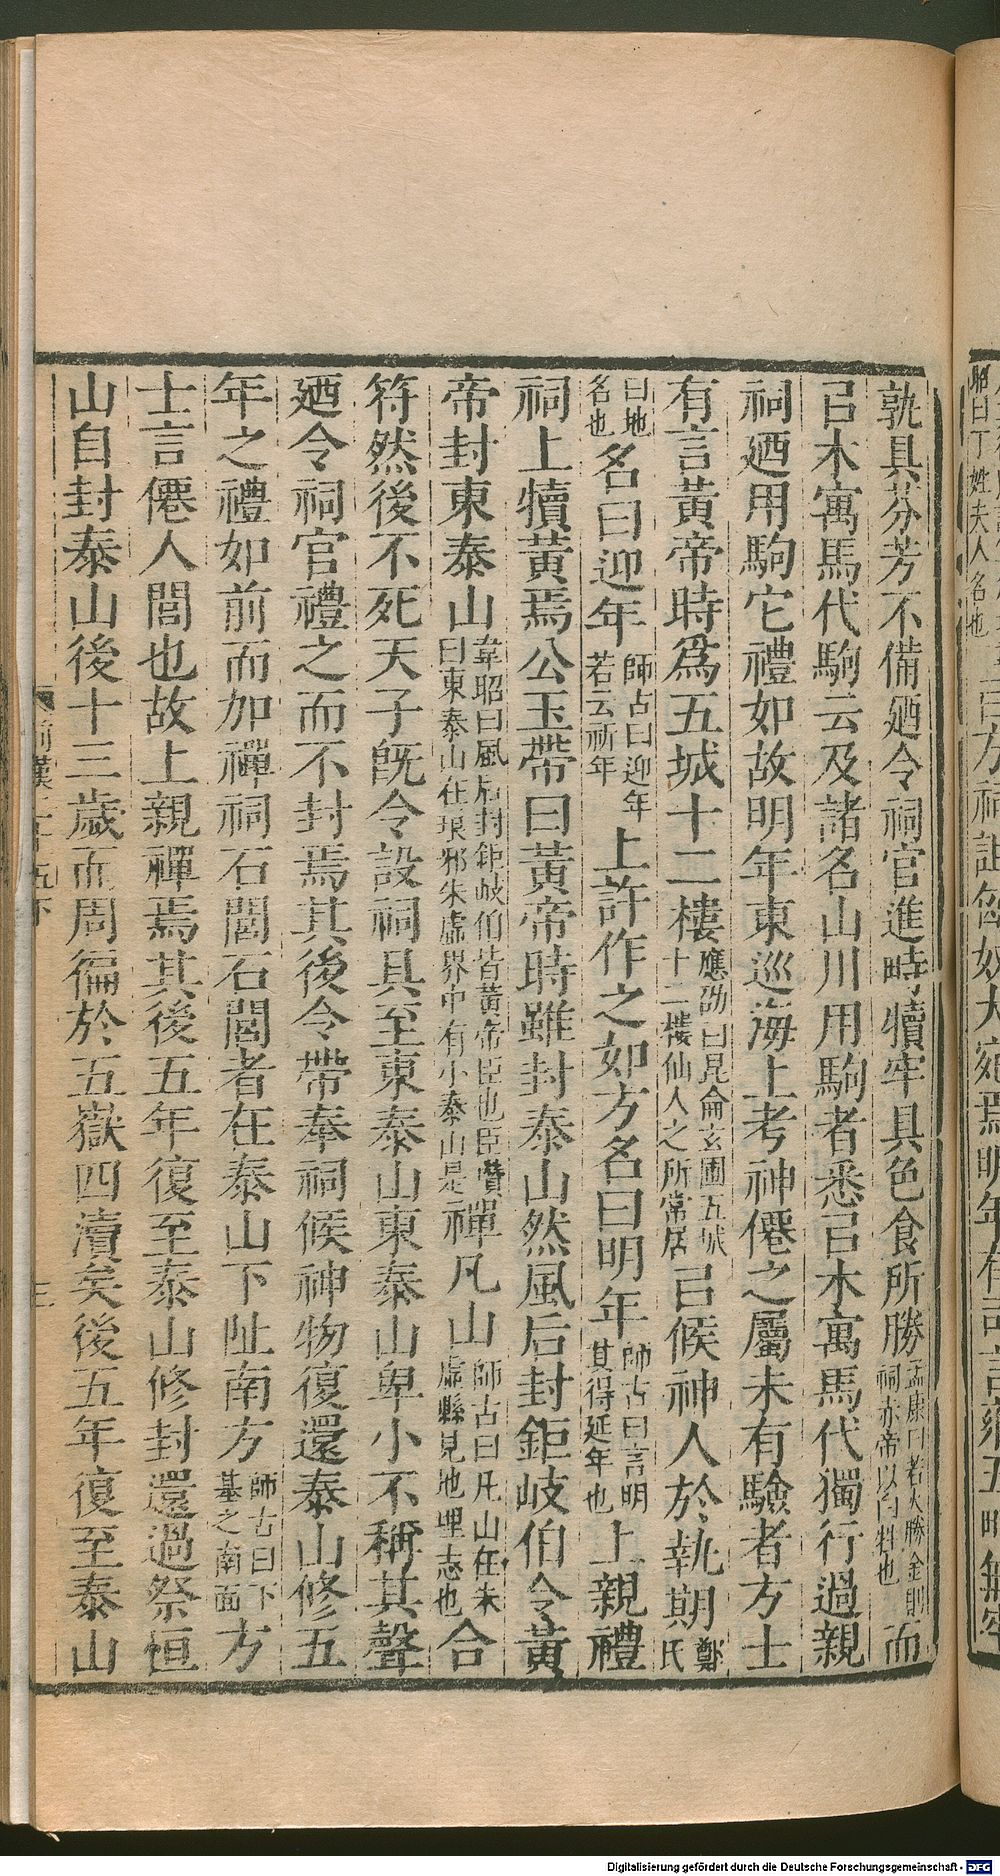 孰具芬芳不備廼令祠官進畤犢牢具色食所勝孟康曰若火勝金則祠赤帝以白牲也而
㠯木寓馬代駒云及諸名山川用駒者悉㠯木寓馬代獨行過親
祠廼用駒它禮如故明年東巡海上考神僊之屬未有驗者方士
有言黃帝時爲五城十二樓應劭曰昆侖玄圃五城十二樓仙人之所常居㠯候神人於執期鄭氏
曰地名也名曰迎年師古曰迎年若云祈年上許作之如方名曰明年師古曰言明其得延年也上親禮
祠上犢黃焉公玉帶曰黃帝時雖封泰山然風后封鉅岐伯令黃
帝封東泰山韋昭曰風后封鉅岐伯皆黃帝臣也臣瓚曰東泰山在琅邪朱虛界中有小泰山是禪凡山師古曰凡山在朱虛縣見地理志也合
符然後不死天子既令設祠具至東泰山東泰山卑小不稱其聲
廼令祠官禮之而不封焉其後令帶奉祠候神物復還泰山修五
年之禮如前而加禪祠石閭石閭者在泰山下阯南方師古曰下基之南面方
士言僊人閭也故上親禪焉其後五年復至泰山修封還過祭恒
山自封泰山後十三歲而周徧於五嶽四瀆矣後五年復至泰山
前漢二十五下
三
昭曰丁姓夫人名也
Digitalisierung gefördert durch die Deutsche Forschungsgemeinschaft - DFG